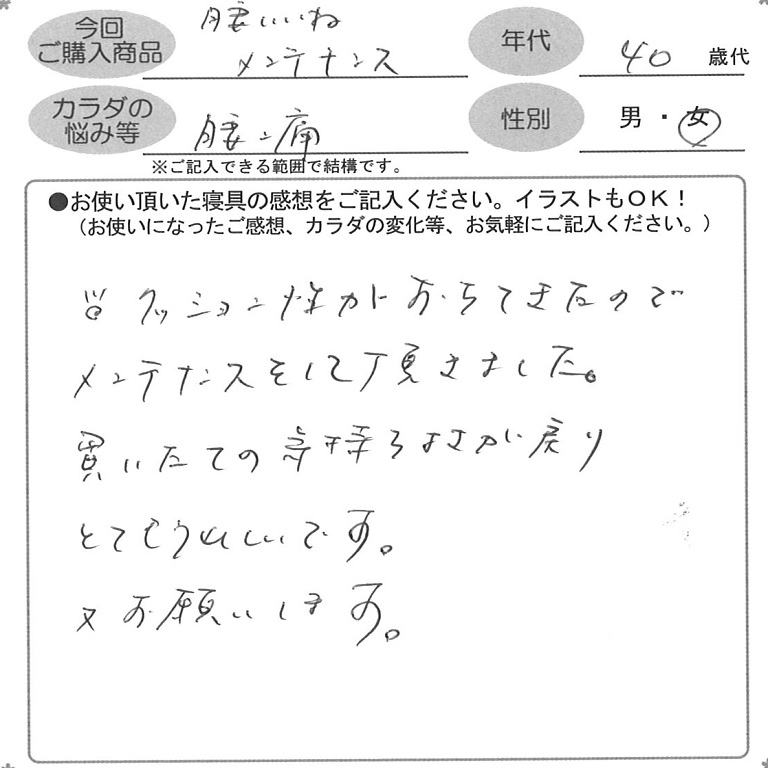 今回
ご購入商品
腰いいね
メンテナンス
年代
40 歳代
カラダの
悩み等
腰痛
性別
男・女
※ご記入できる範囲で結構です。
●お使い頂いた寝具の感想をご記入ください。イラストもOK！
（お使いになったご感想、カラダの変化等、お気軽にご記入ください。）
クッション性がおちてきたので
メンテナンスをして頂きました。
買いたての気持ちよさが戻り
とてもうれしいです。
又お願いします。